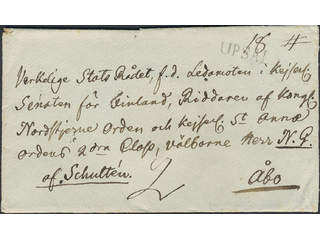 UPSALA
18. 4
Verklige Stats Rådet, f.d. Ledamoten i Kejserl.
Senaten för Finland, Riddaren af Kongl.
Nordstjerne Orden och Kejserl. St Annæ
Ordens 2dra Class, Välborne Herr N. G.
af. Schultén.
2
Åbo